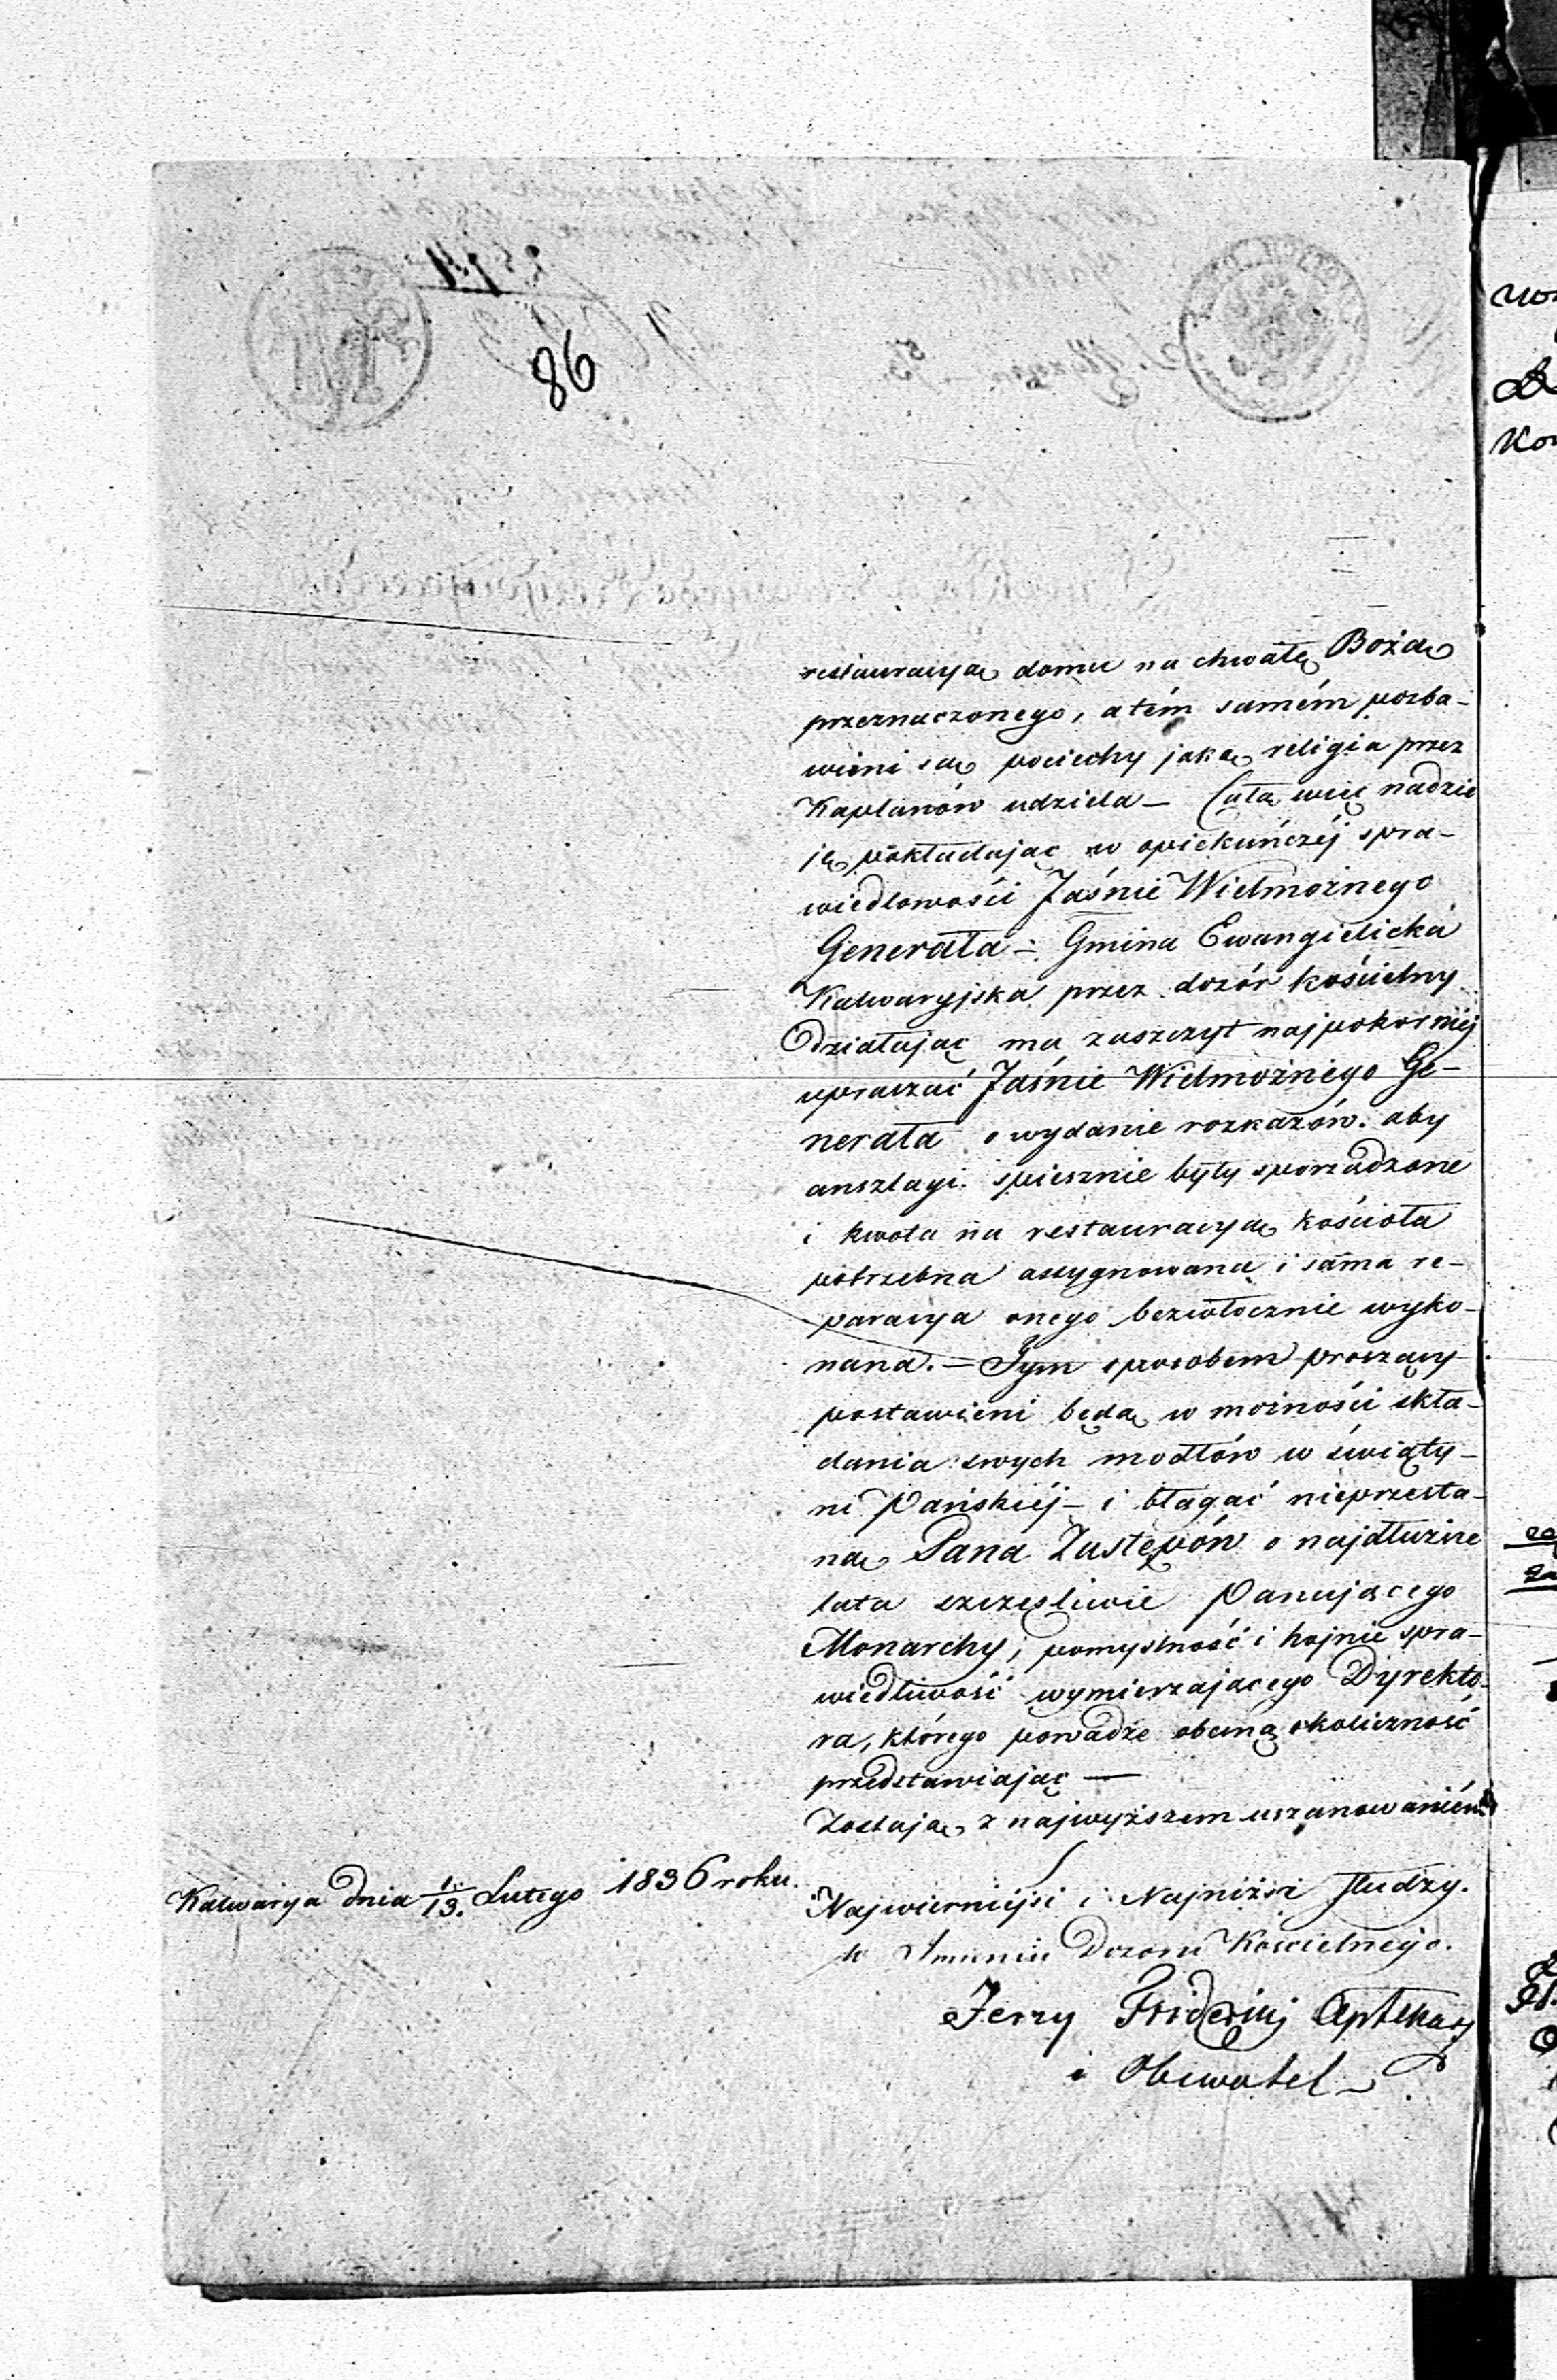 86
restauracyą domu na chwałę Bożą
przeznaczonego, a tém samém pozba-
wieni są pociechy jaką religia przez
Kapłanów udziela — Całą więc nadzie
ję pokładając w opiekuńczéj spra-
wiedlowości Jaśnie Wielmożnego
Generała — Gmina Ewangielicka
Kalwaryjska przez dozór kościelny
działając ma zaszczyt najpokorniéj
upraszać Jaśnie Wielmożnego Ge-
nerała o wydanie rozkazów. aby
anszlagi spiesznie były sporządzone
i kwota na restauracyą kościoła
potrzebna assygnowaną i sama re-
paracya onego bezwłocznie wyko-
nana. — Tym sposobem proszący
postawieni będą w możności skła-
dania swych modłów w świąty-
ni Pańskiéj — i błagać nieprzesta-
ną Pana Zastępów o najdłuższe
lata szczęśliwie Panującego
Monarchy, pomyślność i hojnie spra-
wiedliwość wymierzającego Dyrekto-
ra, którego powadze obecną okoliczność
przedstawiając —
Zostają z najwyższem uszanowaniém
Kalwarya dnia 1/13. Lutego 1836 roku.
Najwierniejsi i Najniżsi Słudzy.
w Imieniu Dozoru Kościelnego.
Jerzy Aptekarz
i Obywatel